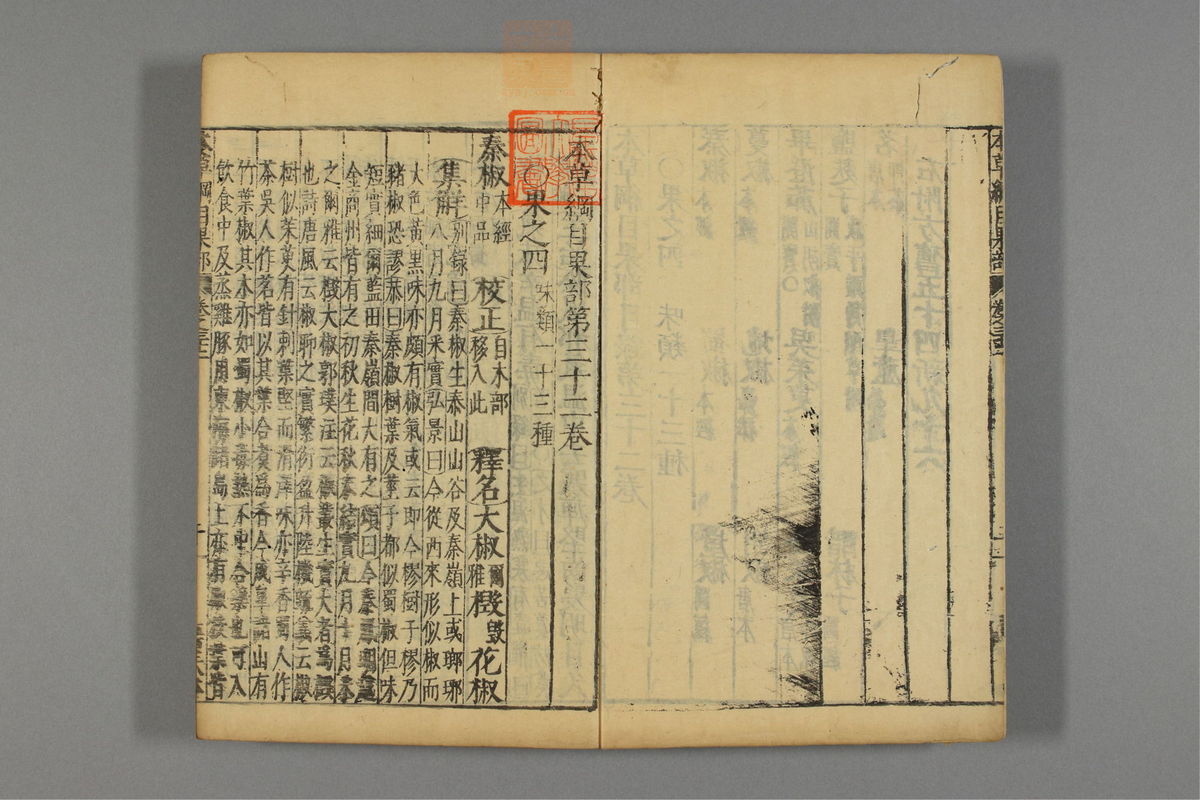 本草綱目果部第三十二卷
○果之四 味類一十三種
秦椒 本經中品 校正 自木部移入此 釋名 大椒 爾雅 檓 毀 花椒
集解 別錄曰秦椒生泰山山谷及秦嶺上或瑯琊
八月九月采實弘景曰今從西來形似椒而
大色黃黑味亦頗有椒氣或云即今樛樹子樛乃
豬椒恐謬恭曰秦椒樹葉及莖子都似蜀椒但味
短實細爾藍田秦嶺間大有之頌曰今秦鳳
金商州皆有之初秋生花秋末結實九月十月采
之爾雅云檓大椒郭璞注云椒叢生實大者為檓
也詩唐風云椒聊之實繁衍盈升陸機疏義云椒
樹似茱萸有針刺葉堅而滑澤味亦辛香蜀人作
茶吳人作茗皆以其葉合煮為香今成皋諸山有
竹葉椒其木亦如蜀椒小毒熱不中合藥也可入
飲食中及蒸雞豚用東海諸島上亦有椒枝葉皆
本草綱目果部